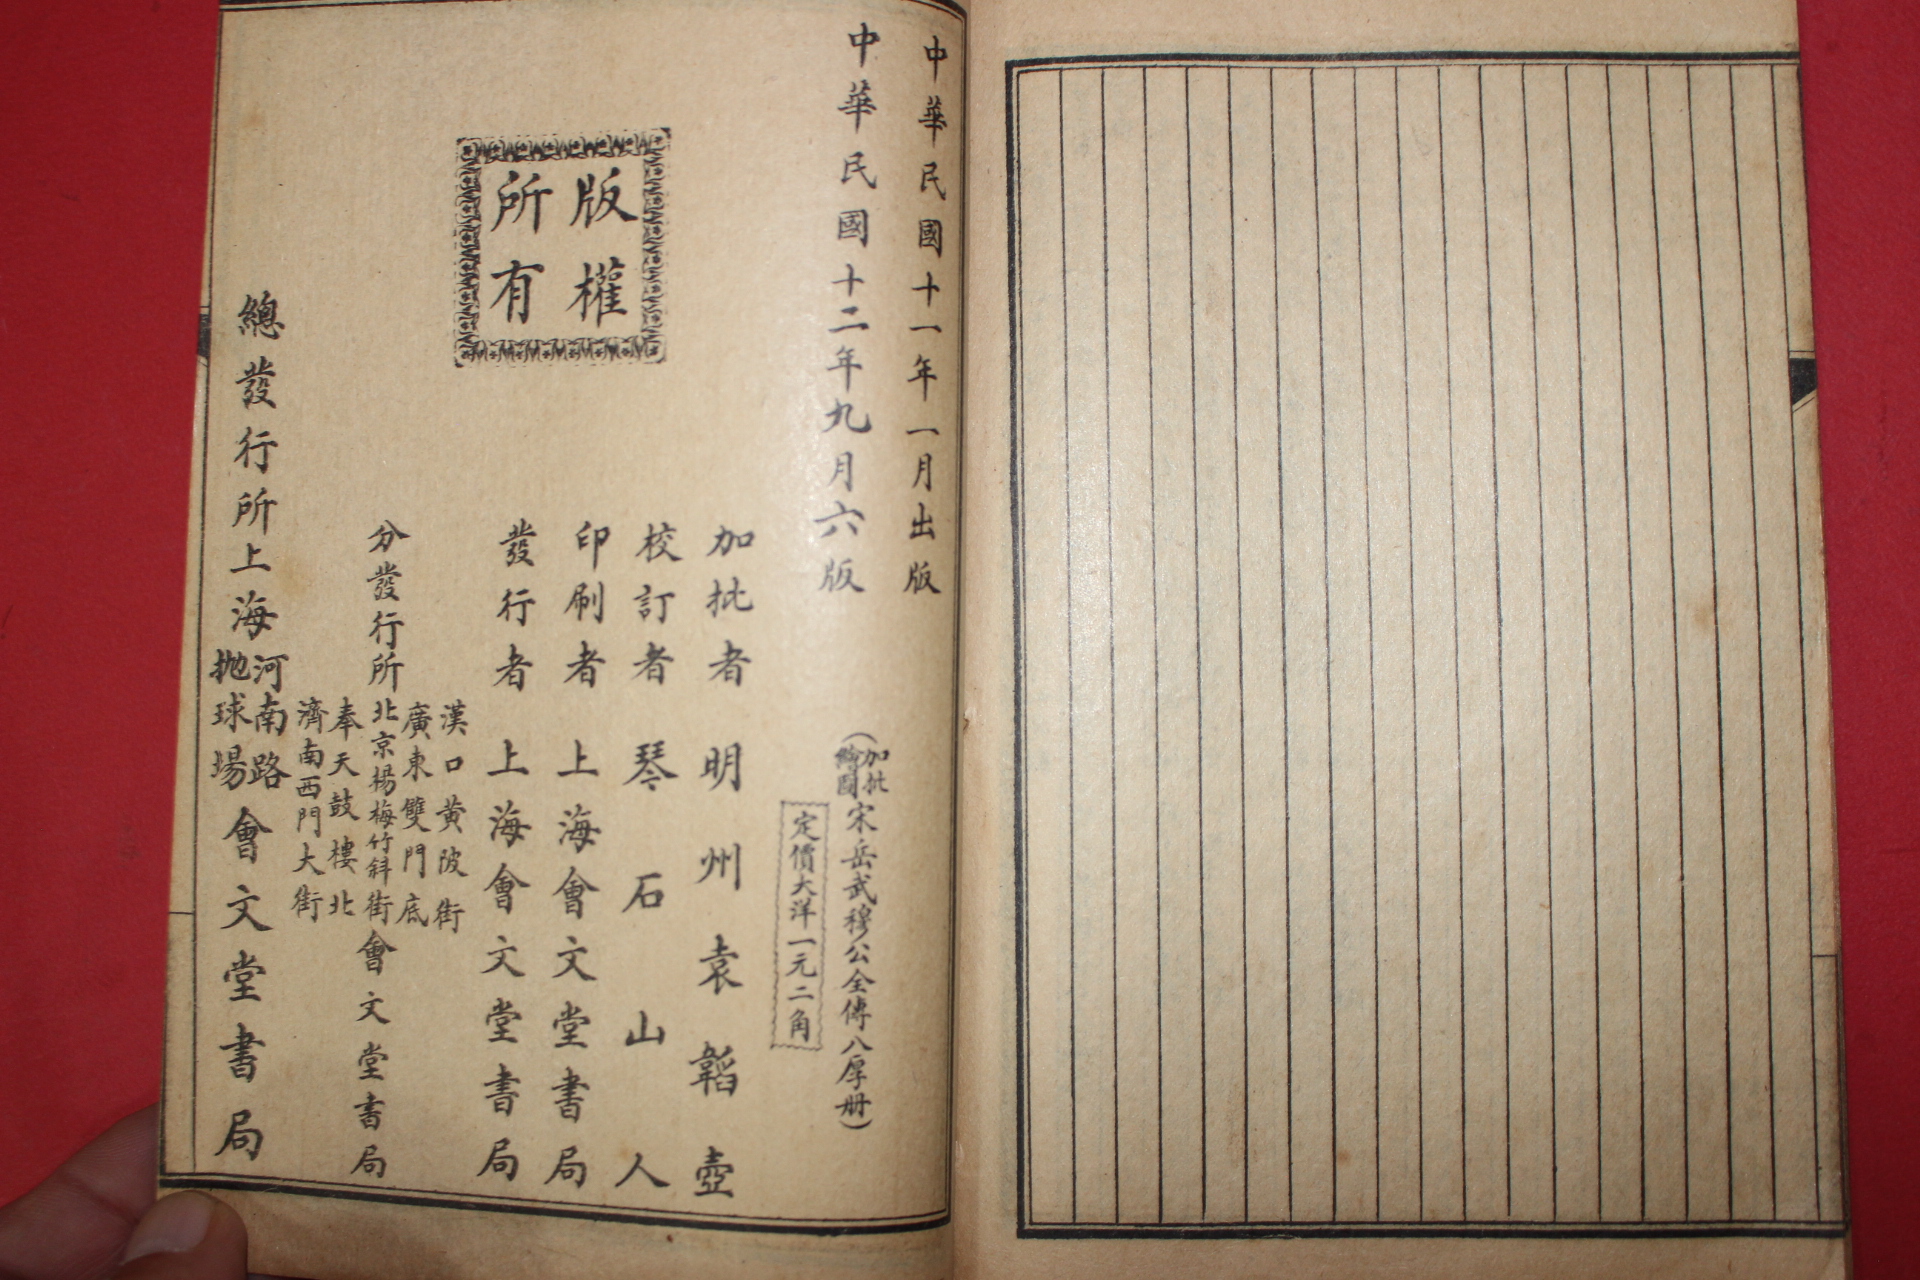 中華民國十一年一月出版
中華民國十二年九月六版
(加批繪圖宋岳武穆公全傳八厚册)
定價大洋一元二角
加批者 明州袁韜壺
校訂者 琴石山人
印刷者 上海會文堂書局
發行者 上海會文堂書局
版權
所有
漢口黃陂街
廣東雙門底
分發行所 北京楊梅竹斜街 會文堂書局
奉天鼓樓北
濟南西門大街
總發行所上海河南路拋球場會文堂書局